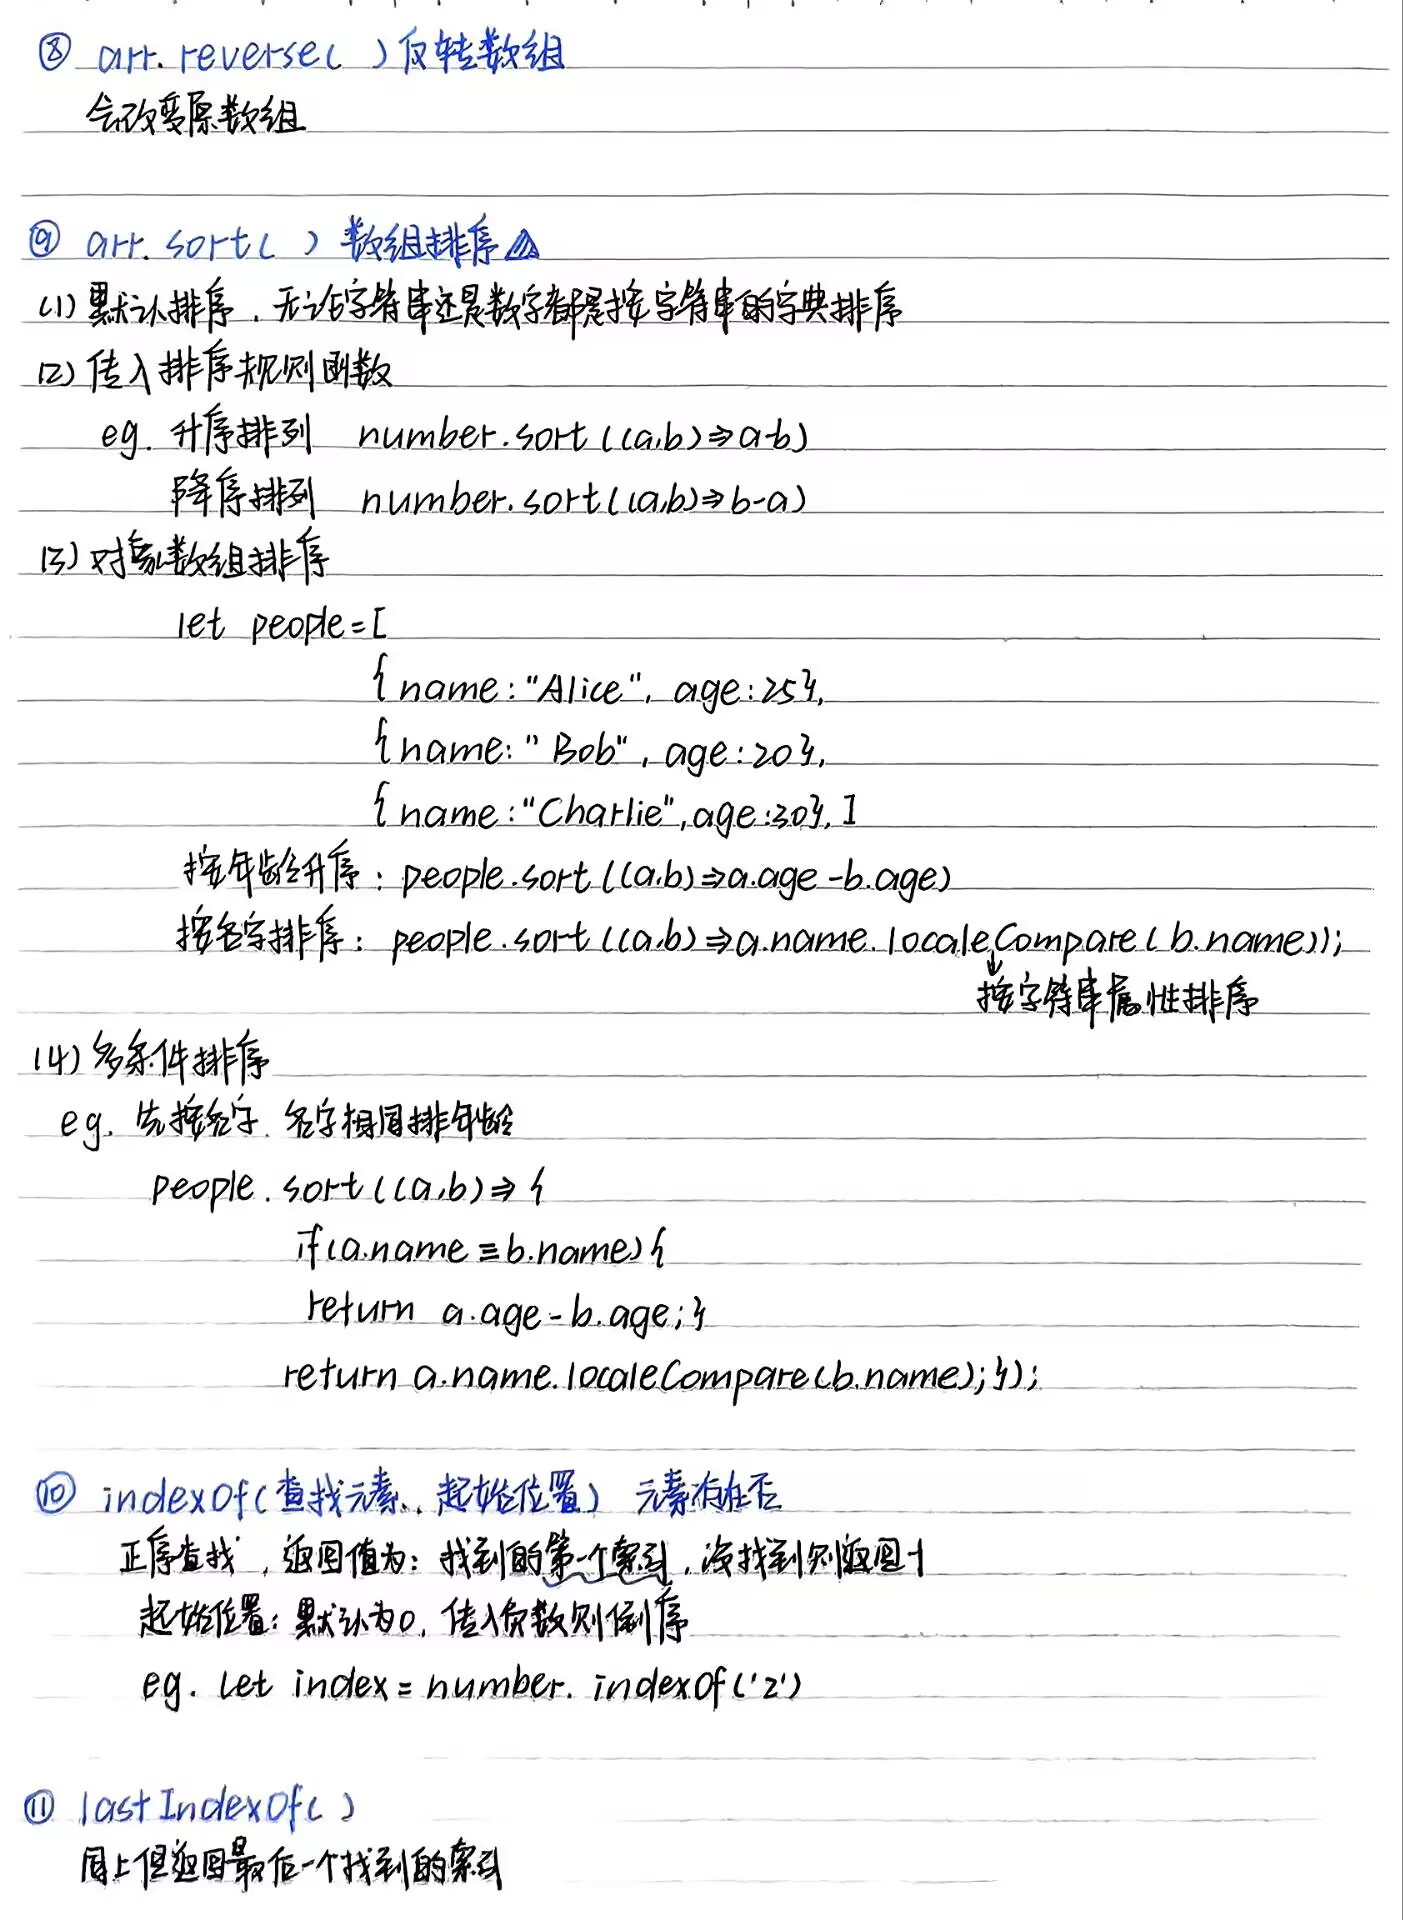 ⑧ arr.reverse( ) 反转数组
会改变原数组
⑨ arr.sort( ) 数组排序
(1) 默认排序，无论字符串还是数字都是按字符串的字典排序
(2) 传入排序规则函数
eg. 升序排列 number.sort((a,b)⇒a-b)
降序排列 number.sort((a,b)⇒b-a)
(3) 对象数组排序
let people=[
{name:"Alice", age:25},
{name:"Bob", age:20},
{name:"Charlie",age:30},]
按年龄升序：people.sort((a,b)⇒a.age-b.age)
按名字排序：people.sort((a,b)⇒a.name.localeCompare(b.name));
↓
按字符串属性排序
(4) 多条件排序
eg. 先按名字，名字相同排年龄
people.sort((a,b)⇒{
if(a.name≡b.name){
return a.age-b.age;}
return a.name.localeCompare(b.name);});
⑩ indexOf(查找元素，起始位置) 元素存在否
正序查找，返回值为：找到的第一个索引，没找到则返回-1
起始位置：默认为0，传入负数则倒序
eg. let index=number.indexOf('2')
⑪ lastIndexOf( )
同上但返回最后一个找到的索引